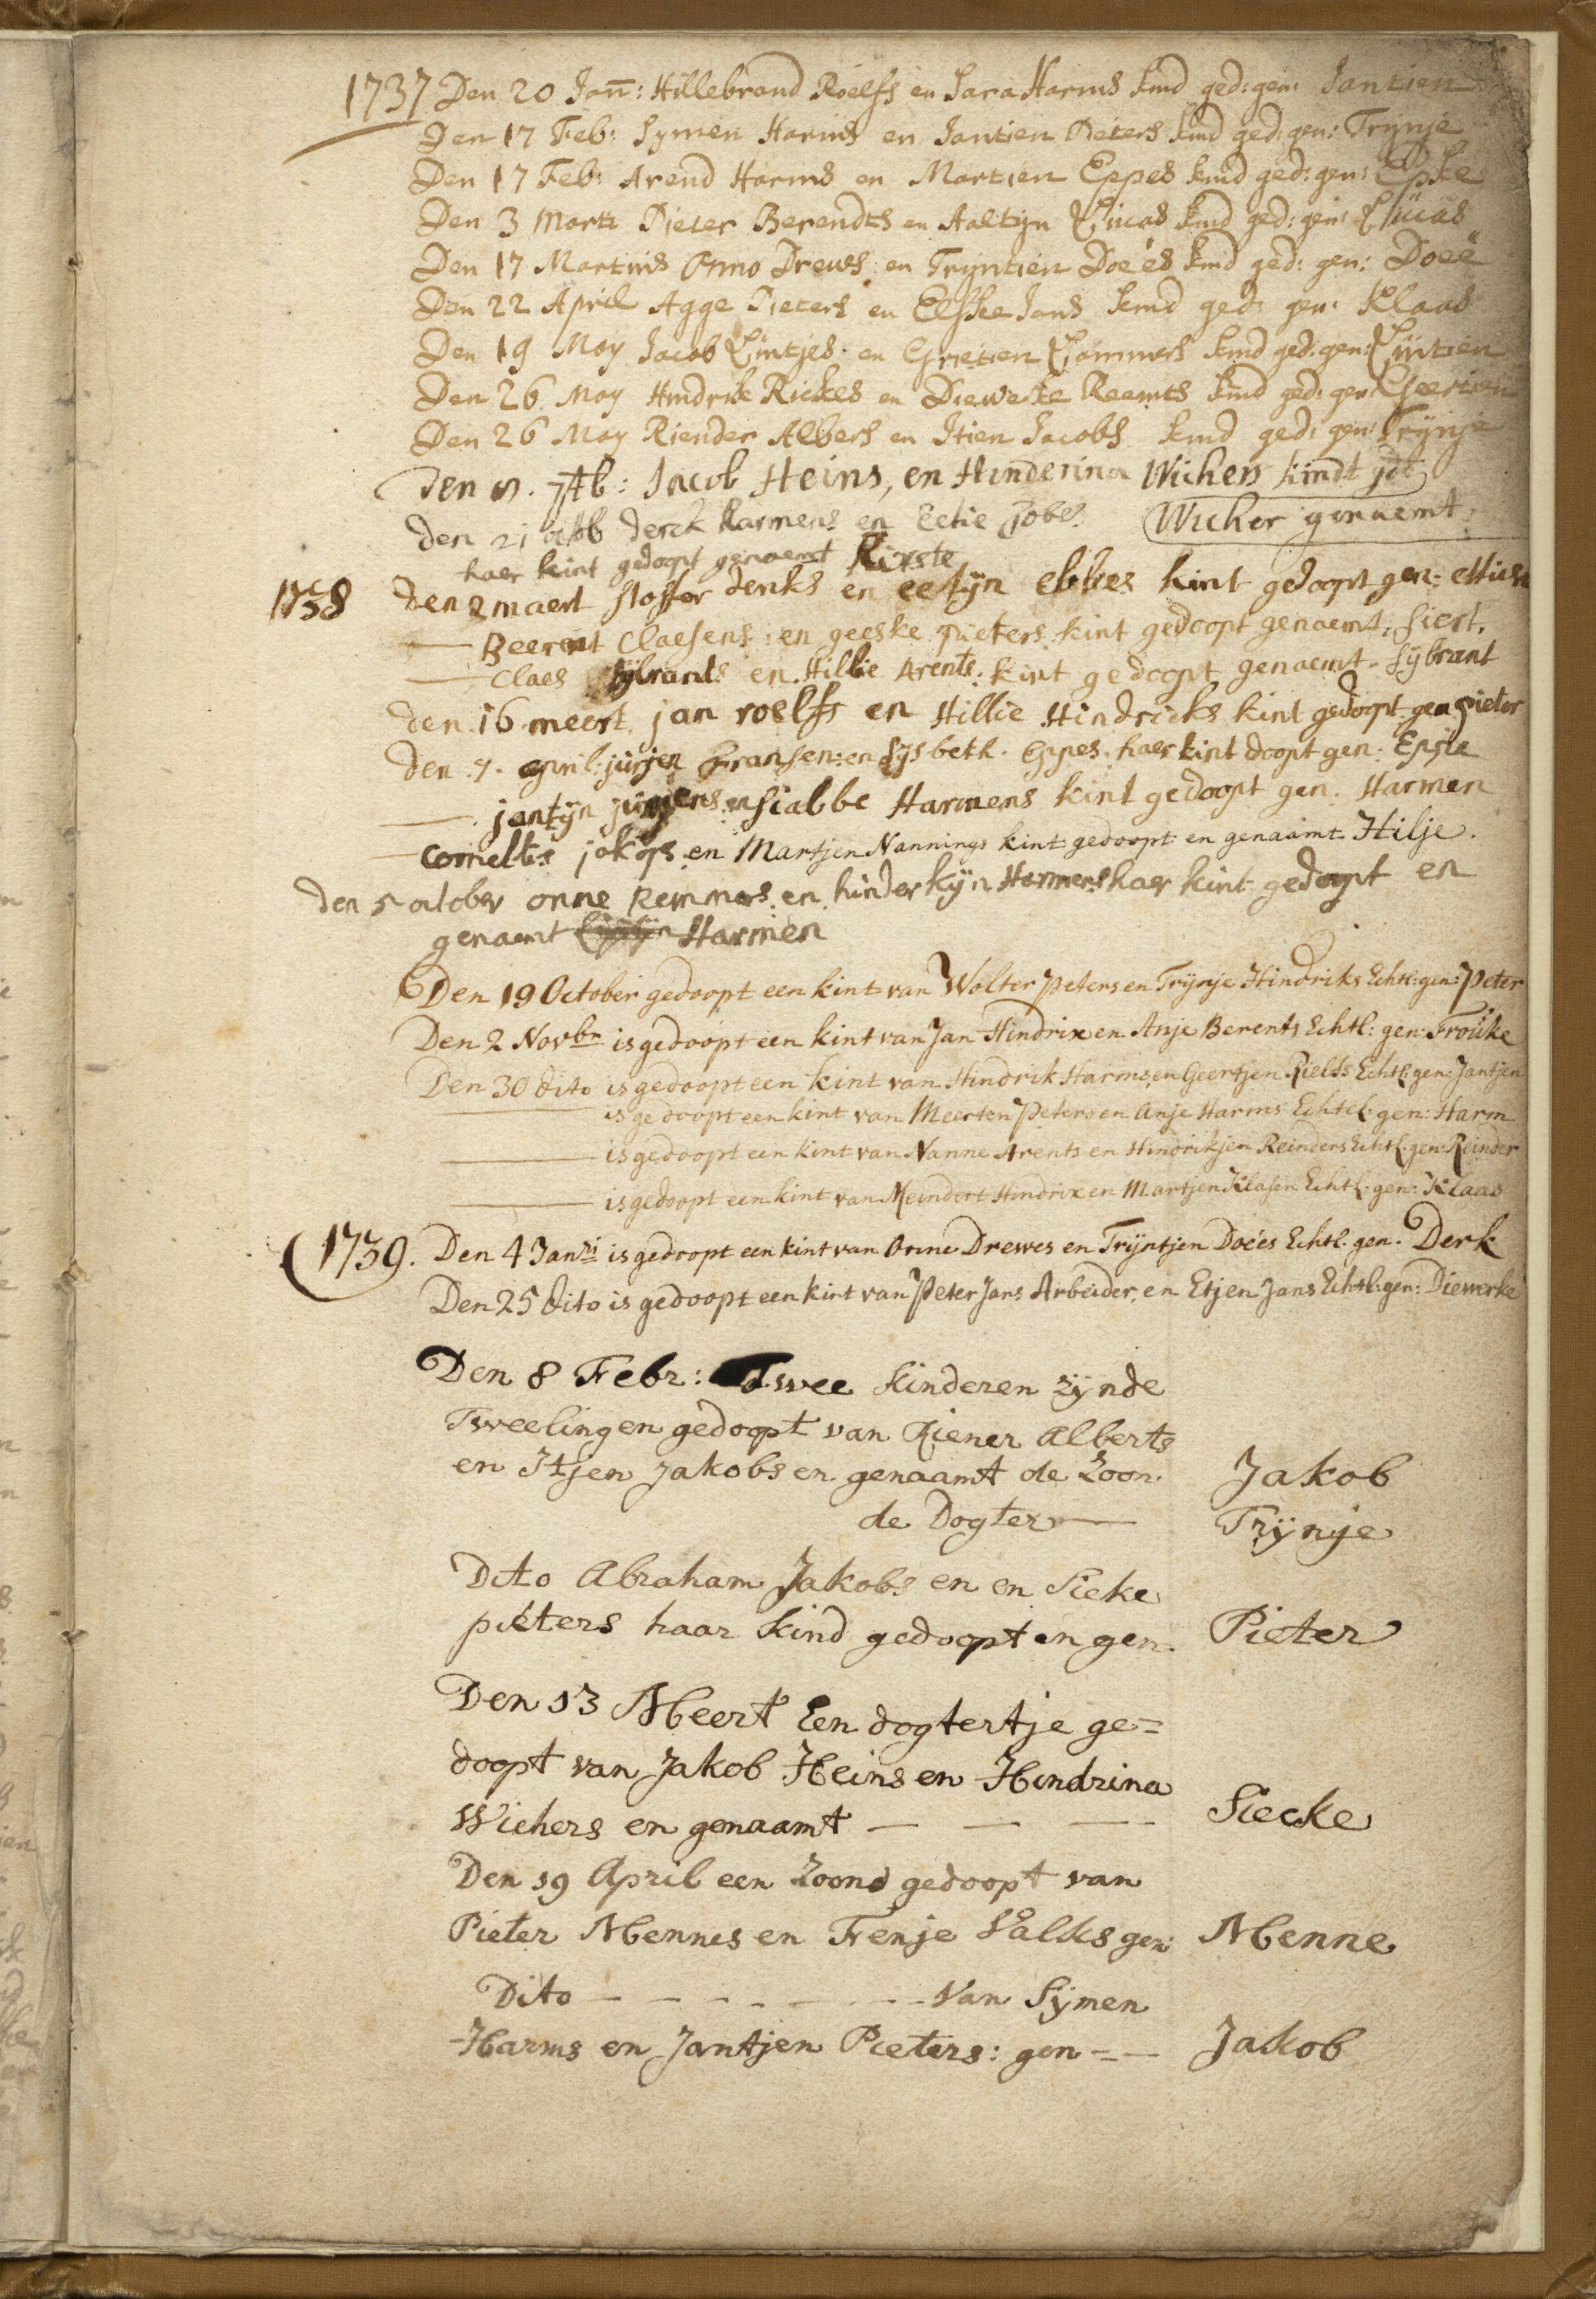 1737 Den 20 Jan: Hillebrand Roelfs en Sara Harms kind ged: gen: Jantien
Den 17 Feb: Symen Harms en Jantien Pieters kind ged: gen: Trynje
Den 17 Feb: Arend Harms en Martien Eppes kind ged: gen: Epke
Den 3 Marti Pieter Berendts en Aaltijn Lucas kind ged: gen: Lucas
Den 17 Martius Onno Drews en Tryntien Doe'es kind ged: gen: Doeë
Den 22 April Agge Pieters en Elske Jans kind ged: gen: Klaas
Den 19 May Jacob Luitjes en Grietien Lammers kind ged: gen: Luitien
Den 26 May Hindrik Rickes en Dieweke Reemts kind ged: gen: Geertien
Den 26 May Riender Albers en Itien Jacobs kind ged: gen: Trijnje
Den 7tb: Jacob Heins, en Hinderina Wichers kindt
Wicher genaemt
den 21 octob derck harmens en Eetie Jobes
haer kint gedoopt genaemt Kirste
1738 den 2 maert stoffer denks en eetijn ebbes kint gedoopt gen:
— Beerent Claesens en geeske pieters kint gedoopt genaemt, siert,
— Claes sijbrants en Hillie Arents kint gedoopt genaemt sijbrant
den 16 meert jan roelfs en Hillie Hindricks kint gedoopt gen pieter
den 7. april: jurjen Fransen: en Lijsbeth Eppes haer kint doopt gen: Epje
— jantijn jurjens en siabbe Harmens kint gedoopt gen. Harmen
— Cornelles jakops en Martjen Nannings kint gedoopt en genaamt Hilje.
den 5 october onne Remmers en hinderkijn Harmens haer kint gedopt en
genaemt Harmen
Den 19 October gedoopt een kint van Wolter Peters en Trijnje Hindriks Echtl: gen: Peter
Den 2 Novbr is gedoopt een kint van Jan Hindrix en Anje Berents Echtl: gen: Frouke
Den 30 dito is gedoopt een kint van Hindrik Harms en Geertjen Rielfs Echtl: gen: Jantjen
— is gedoopt een kint van Meerten Peters en Anje Harms Echtel: gen: Harm
— is gedoopt een kint van Nanne Arents en Hindrikjen Reinders Echtl: gen: Reinder
— is gedoopt een kint van Meindert Hindrix en Martjen Klasen Echtl: gen: Klaas
1739. Den 4 Janri is gedoopt een kint van Onne Drewes en Trijntjen Doe'es Echtl. gen. Derk
Den 25 dito is gedoopt een kint van Peter Jans Arbeider, en Etjen Jans Echtl: gen: Diewerke
Den 8 Febr: Twee kinderen zijnde
Tweelingen gedoopt van Riener Alberts
en Itjen Jakobs en genaamt de Zoon. Jakob
de Dogter — Trijnje
Dito Abraham Jakobs en en Sieke
pieters haar kind gedoopt en gen. Pieter
Den 13 Meert Een dogtertje ge=
doopt van Jakob Heins en Hindrina
Wichers en genaamt — — — Siecke
Den 19 April een Zoon gedoopt van
Pieter Mennes en Trenje Valks gen: Menne
Dito - - - - - - - Van Sijmen
Harms en Jantjen Pieters: gen =— Jakob